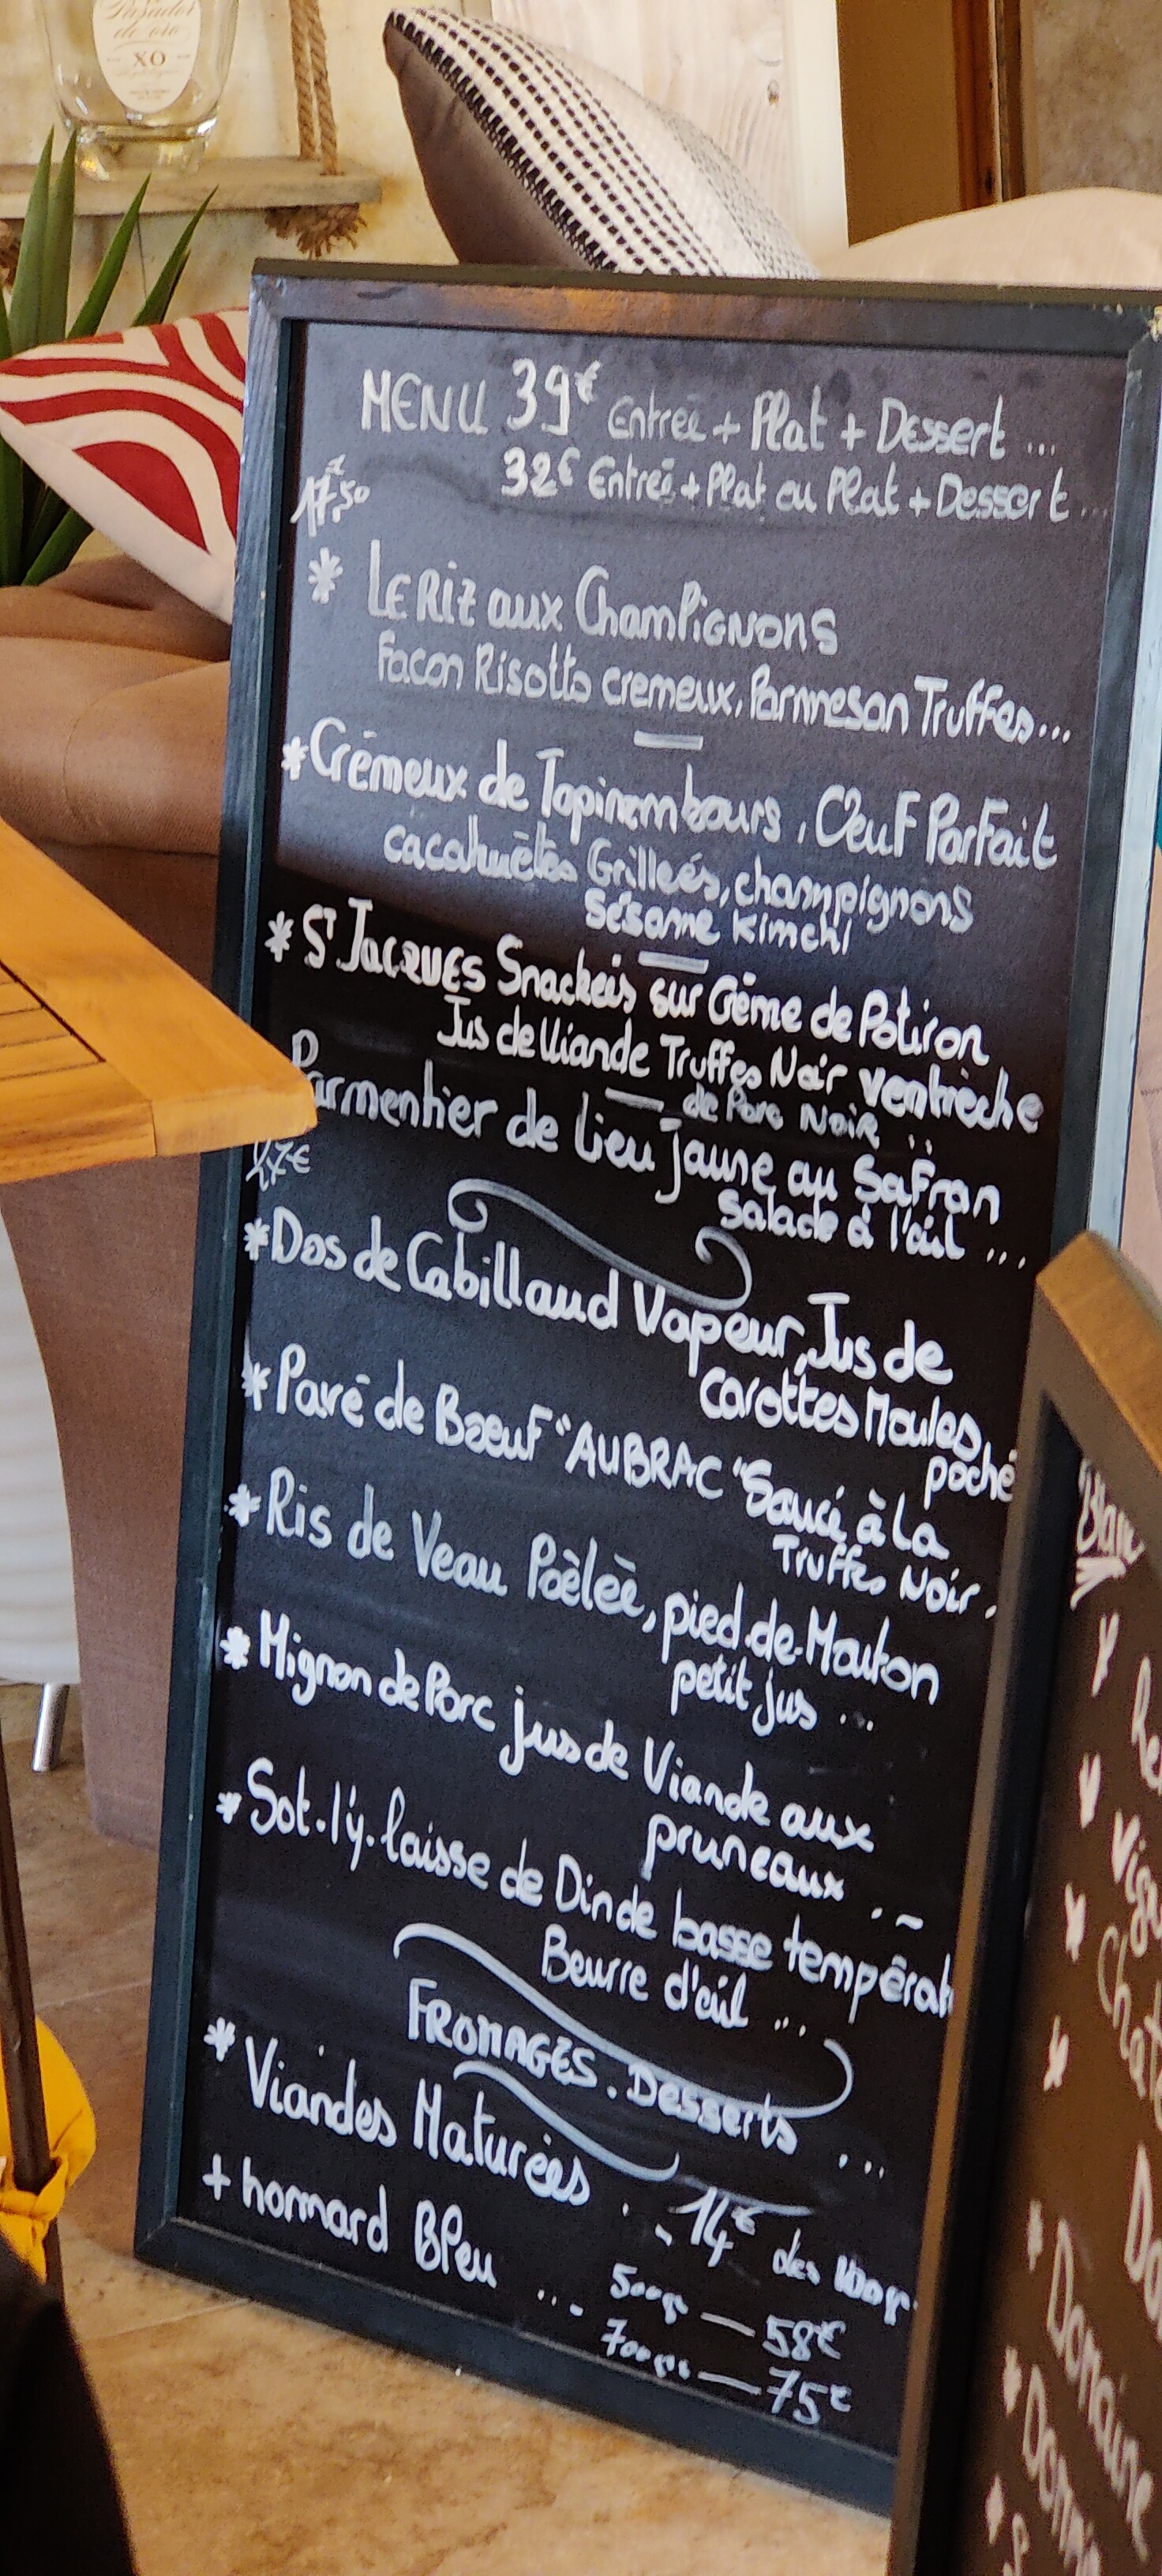 Pasador
de oro
XO
MENU 39€ Entreé + Plat + Dessert ...
32€ Entreé + Plat ou Plat + Dessert ...
17.50
* LE RIZ aux Champignons
Facon Risotto cremeux, Parmesan Truffes...
* Crémeux de Topinambours, Oeuf Parfait
cacahuètes Grilleés, champignons
Sésame Kimchi
* St JACQUES Snackeis sur Crème de Potiron
Jus de Viande Truffes Noir ventrèche
de Porc Noir
Parmentier de lieu jaune au Safran
Salade à l'ail ...
27€
* Dos de Cabillaud Vapeur, Jus de
carottes Moules
poché
* Pavé de Bœuf "AUBRAC" Sauce à la
Truffes Noir.
* Ris de Veau Poèleè, pied-de-Mouton
petit jus ...
* Mignon de Porc jus de Viande aux
pruneaux ...
* Sot-l'y-laisse de Dinde basse températ
Beurre d'ail ...
FROMAGES. Desserts ...
* Viandes Maturées .. 14€ des 100gr
+ homard Bleu ...
500gr — 58€
700gr — 75€
Blanc
Vign
Domaine